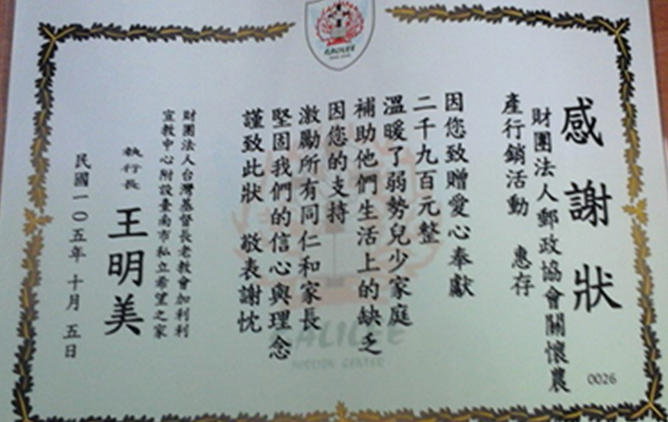 GALILEE
感謝狀
財團法人郵政協會關懷農
產行銷活動 惠存
因您致贈愛心奉獻
二千九百元整
溫暖了弱勢兒少家庭
補助他們生活上的缺乏
因您的支持
激勵所有同仁和家長
堅固我們的信心與理念
謹致此狀 敬表謝忱
財團法人台灣基督長老教會加利利
宣教中心附設臺南市私立希望之家
執行長 王明美
民國一〇五年十月五日
0026
GALILEE
MISSION CENTER